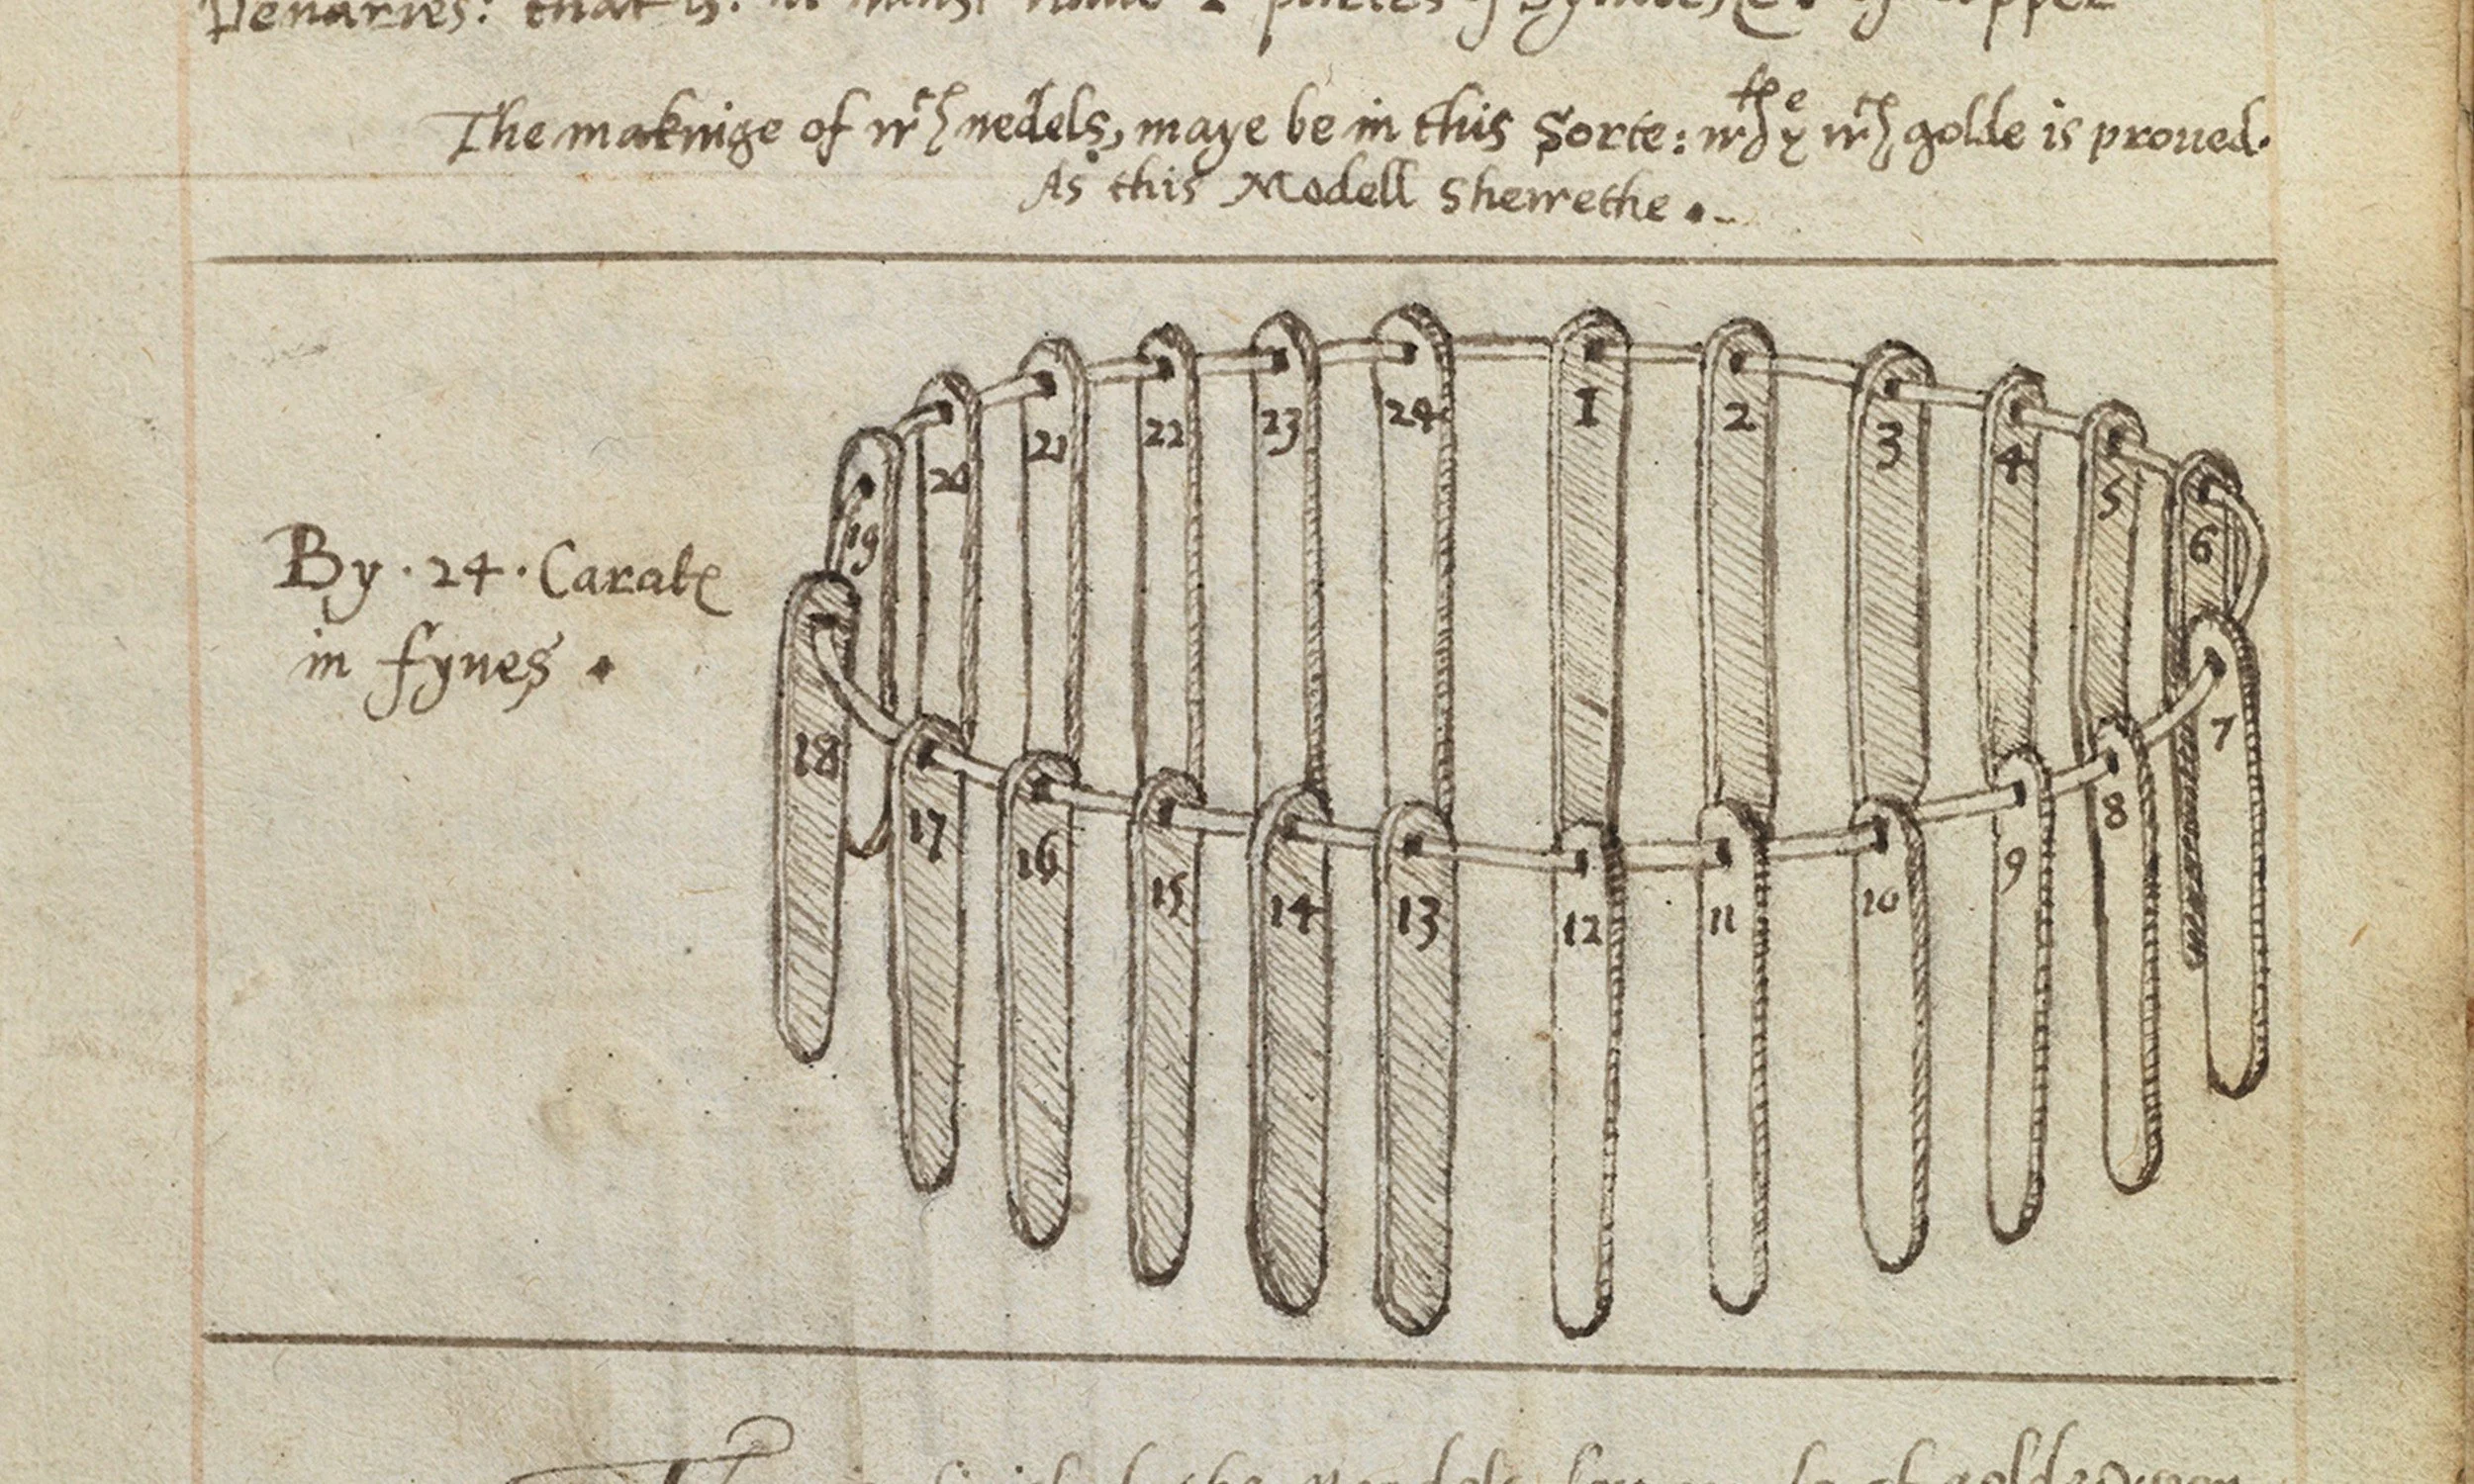 Denaries: that is. it must haue 2 partes of Syluer & of copper
The makinge of wch nedels, maye be in this Sorte: wth ye wch the golde is proued.
As this Modell Shewethe .
24 1 2
23 3
22 4
21 5
20 6
19
By . 24 . Carate
in fynes .
18 7
17 8
16 9
15 10
14 11
13 12